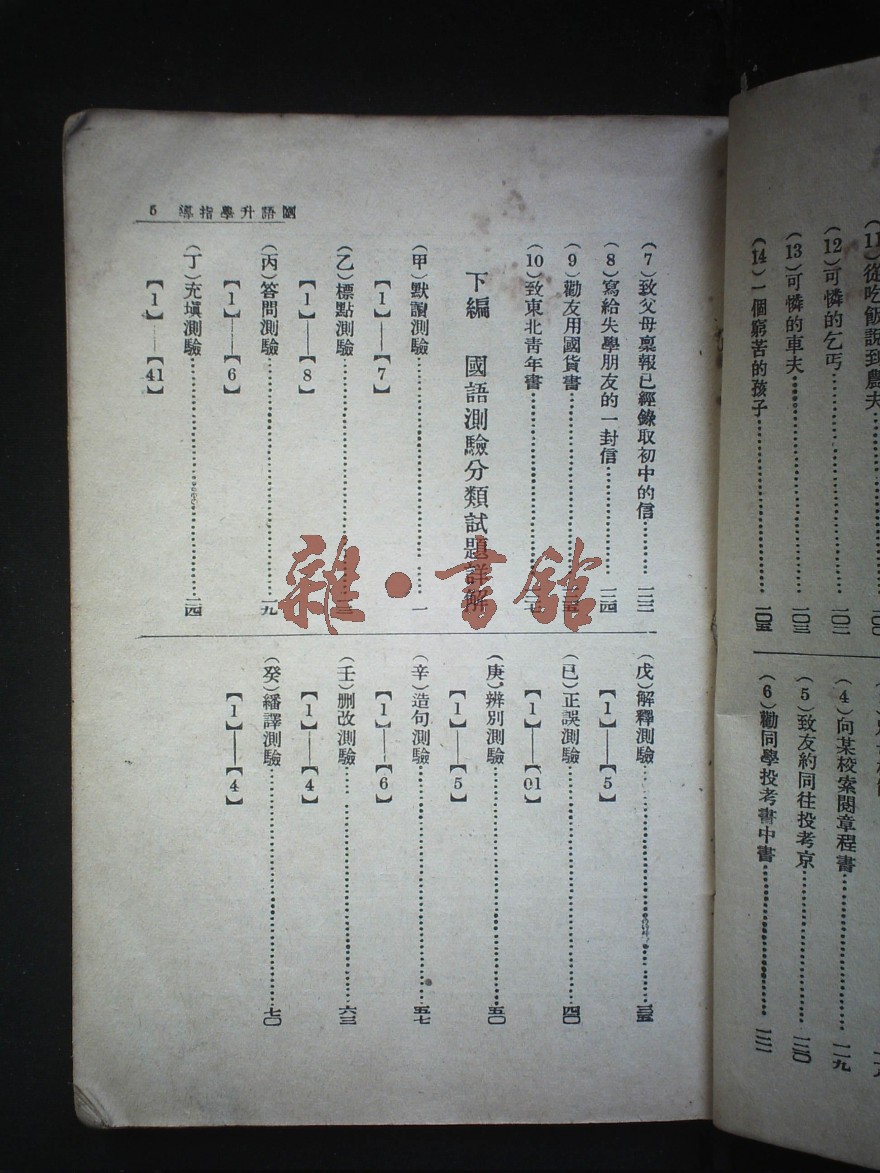 (11)從吃飯說到農夫
(12)可憐的乞丐……一〇二
(13)可憐的車夫……一〇三
(14)一個窮苦的孩子……一〇五
(4)向某校索閱章程書……一一九
(5)致友約同往投考京……一二〇
(6)勸同學投考書中書……
國語升學指導 5
(7)致父母稟報已經錄取初中的信……一二三
(8)寫給失學朋友的一封信……一二四
(9)勸友用國貨書……
(10)致東北青年書……
下編 國語測驗分類試題詳解
(甲)默讀測驗……一
【1】——【7】
(乙)標點測驗……
【1】——【8】
(丙)答問測驗……一九
【1】——【6】
(丁)充填測驗……二四
【1】——【41】
(戊)解釋測驗……三五
【1】——【5】
(已)正誤測驗……四〇
【1】——【01】
(庚)辨別測驗……五〇
【1】——【5】
(辛)造句測驗……五七
【1】——【6】
(壬)刪改測驗……六三
【1】——【4】
(癸)繙譯測驗……七〇
【1】——【4】
雜·書館